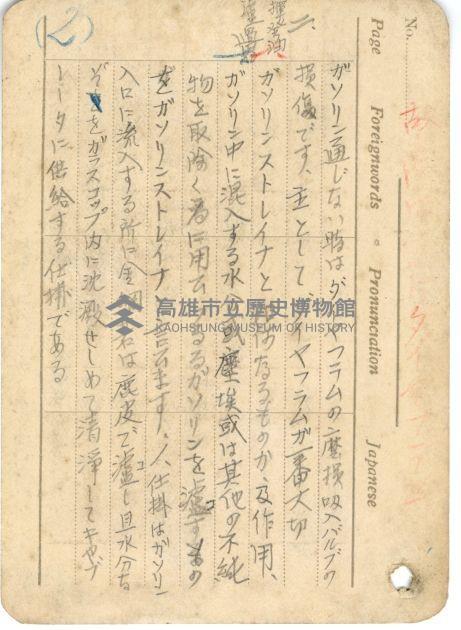 No.
Page Foreignwords 。 Pronunciation Japanese
ガソリン通じない時はダイヤフラムの磨損吸入バルブの
損傷です、主として、ダイヤフラムが一番大切
二、
ガソリンストレイナとは如何なるものか及作用、
ガソリン中に混入する水或塵埃或は其他の不純
物を取除く為に用ひるガソリンを濾すもの
をガソリンストレイナと言ひます、仕掛はガソリン
入口に流入する所に金網若は鹿皮で濾し且水分を
ガラスコップ内に沈殿せしめて清浄してキャブ
レータに供給する仕掛である
(2)
高雄市立歷史博物館
KAOHSIUNG MUSEUM OF HISTORY